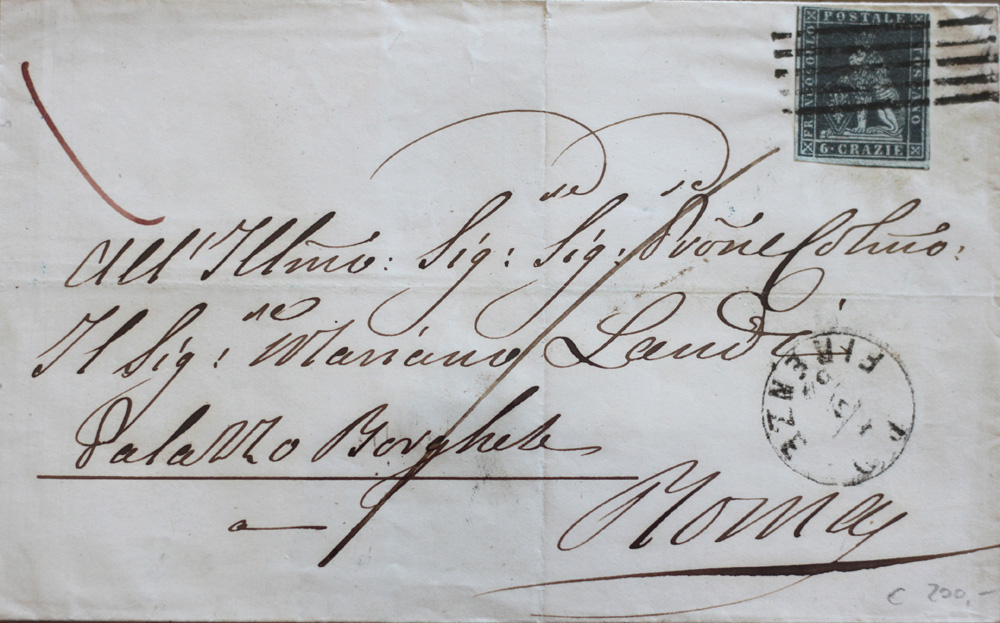 FRANCOBOLLO POSTALE TOSCANO
6·CRAZIE
All' Illm̃o: Sig: Sigre: Prõne Colm̃o:
Il Sig:re Mariano Landi
Palazzo Borghese
Roma
FIRENZE
C 200,-